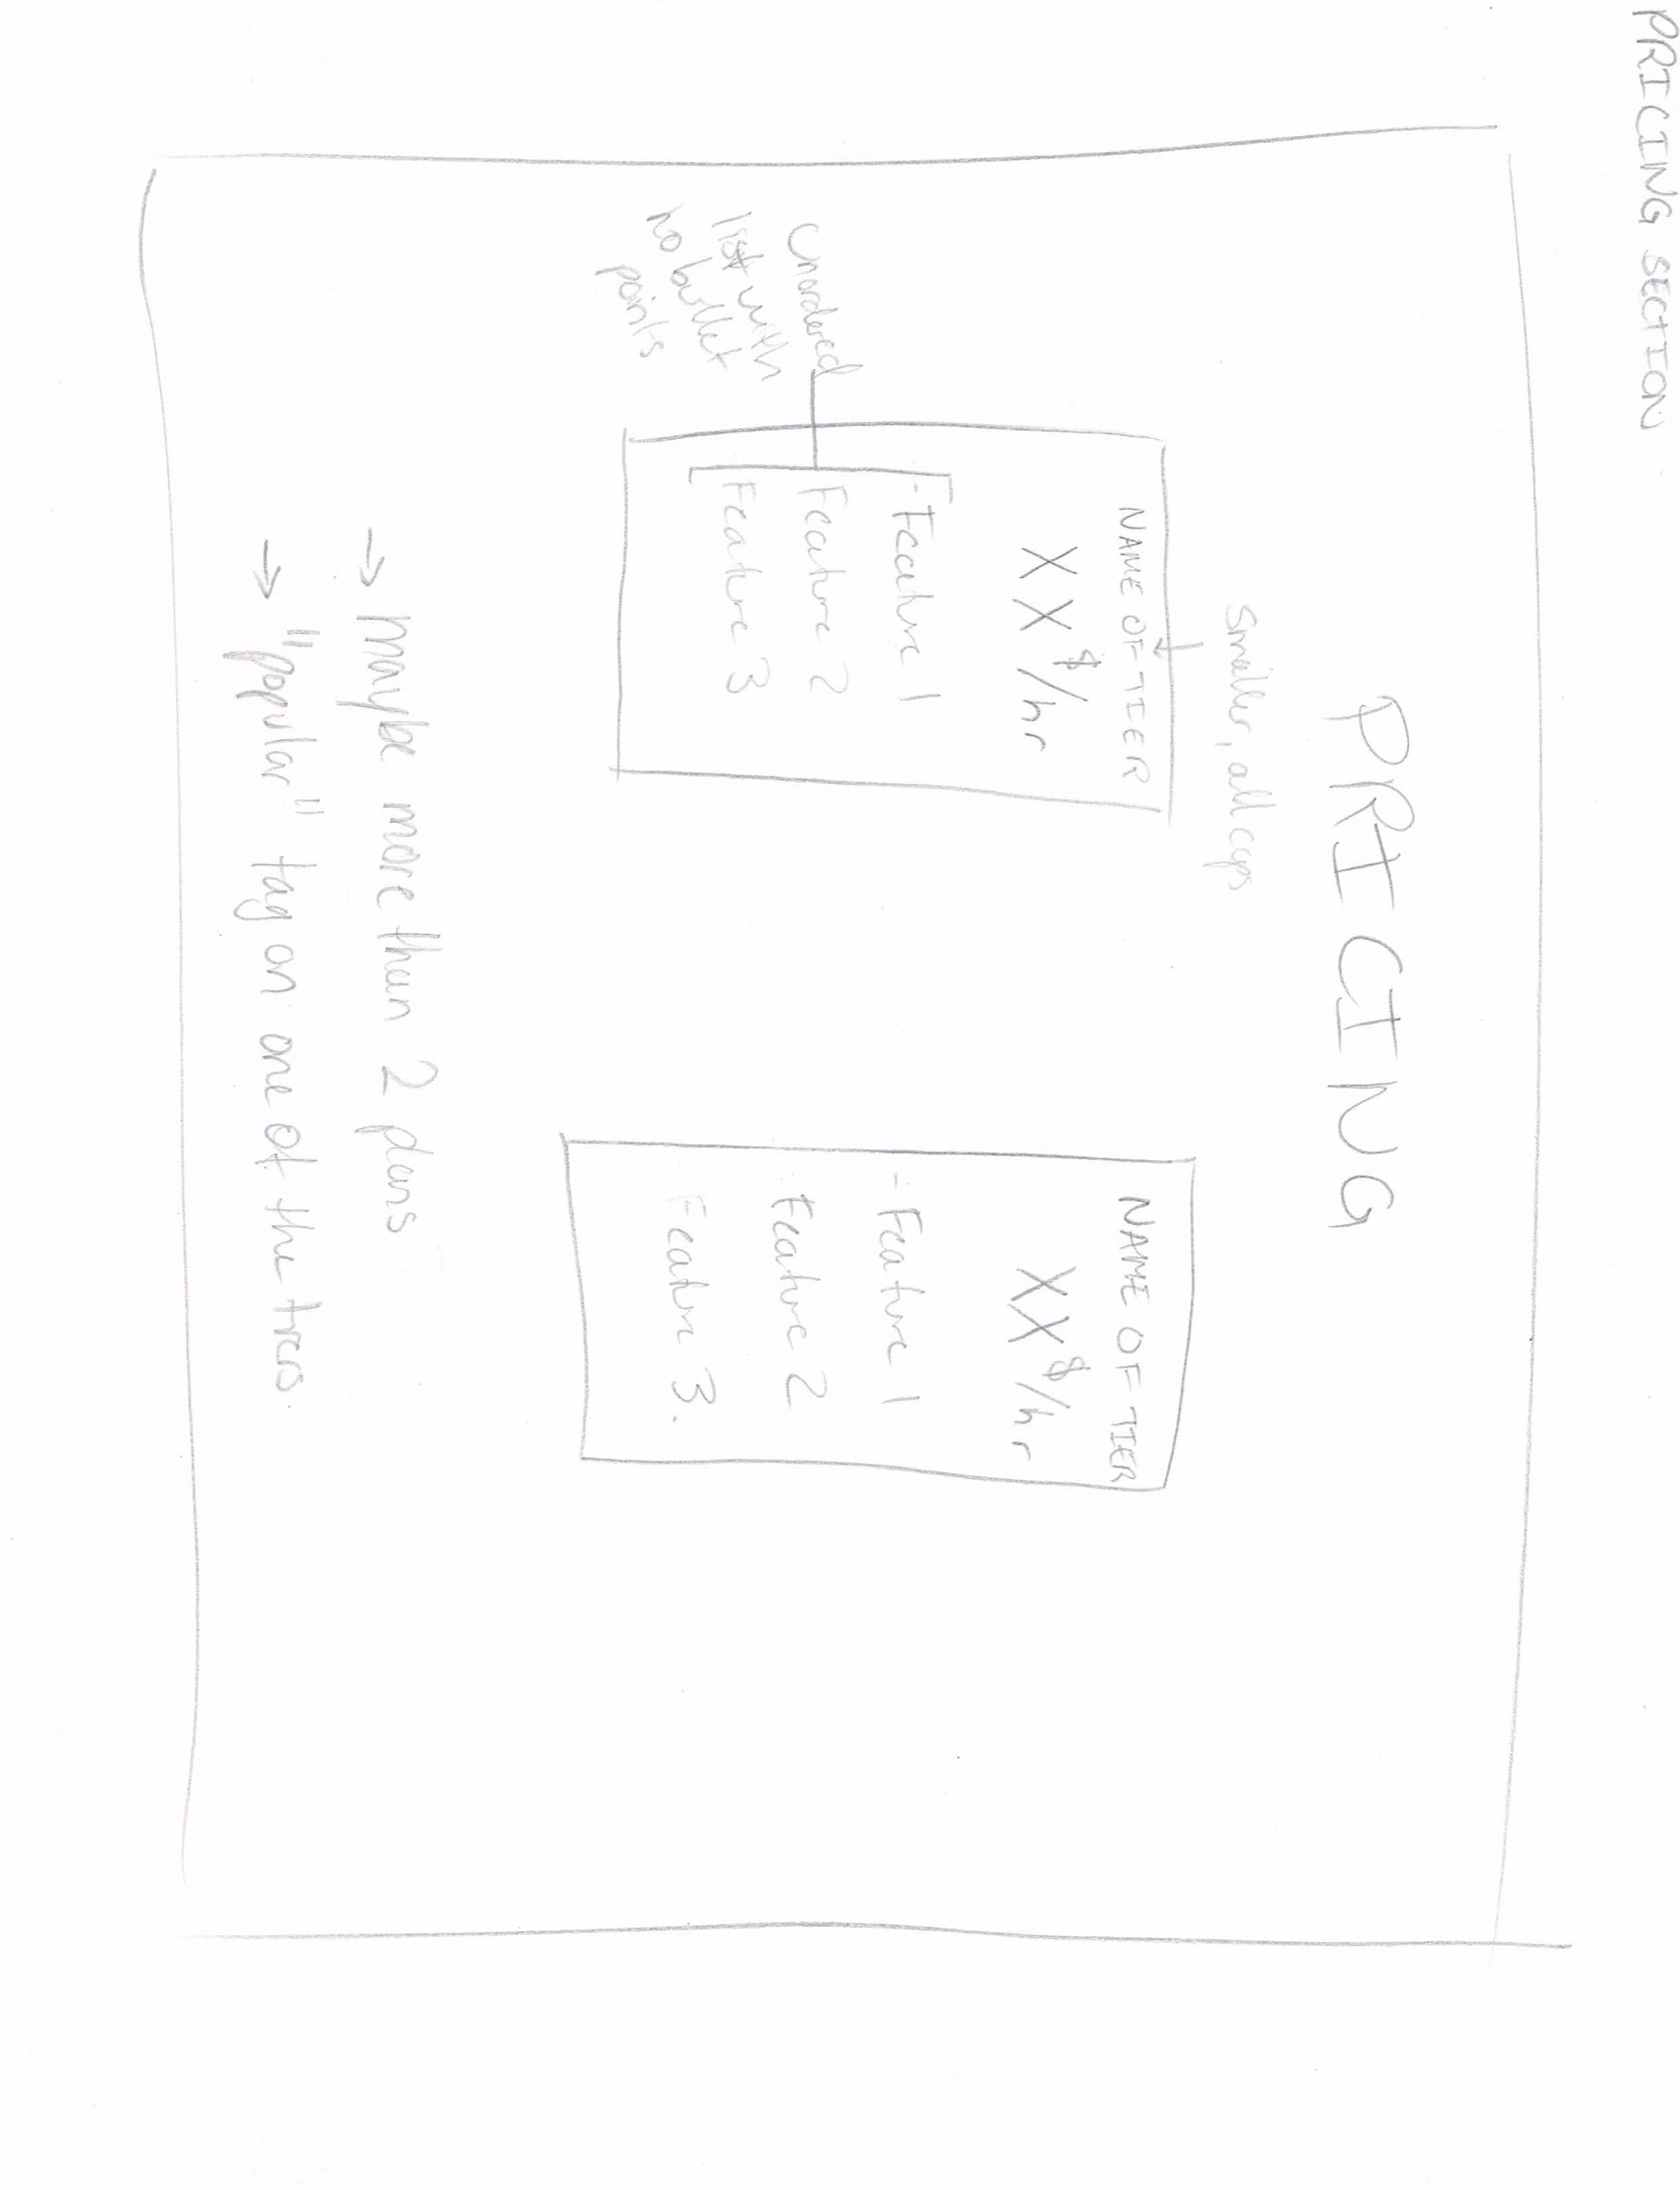 PRICING SECTION
PRICING
smaller, all caps
NAME OF TIER
XX$/hr
- Feature 1
Feature 2
Feature 3
Unordered
list with
no bullet
points
NAME OF TIER
XX$/hr
- Feature 1
Feature 2
Feature 3.
→ maybe more than 2 plans
→ "popular" tag on one of the tiers.